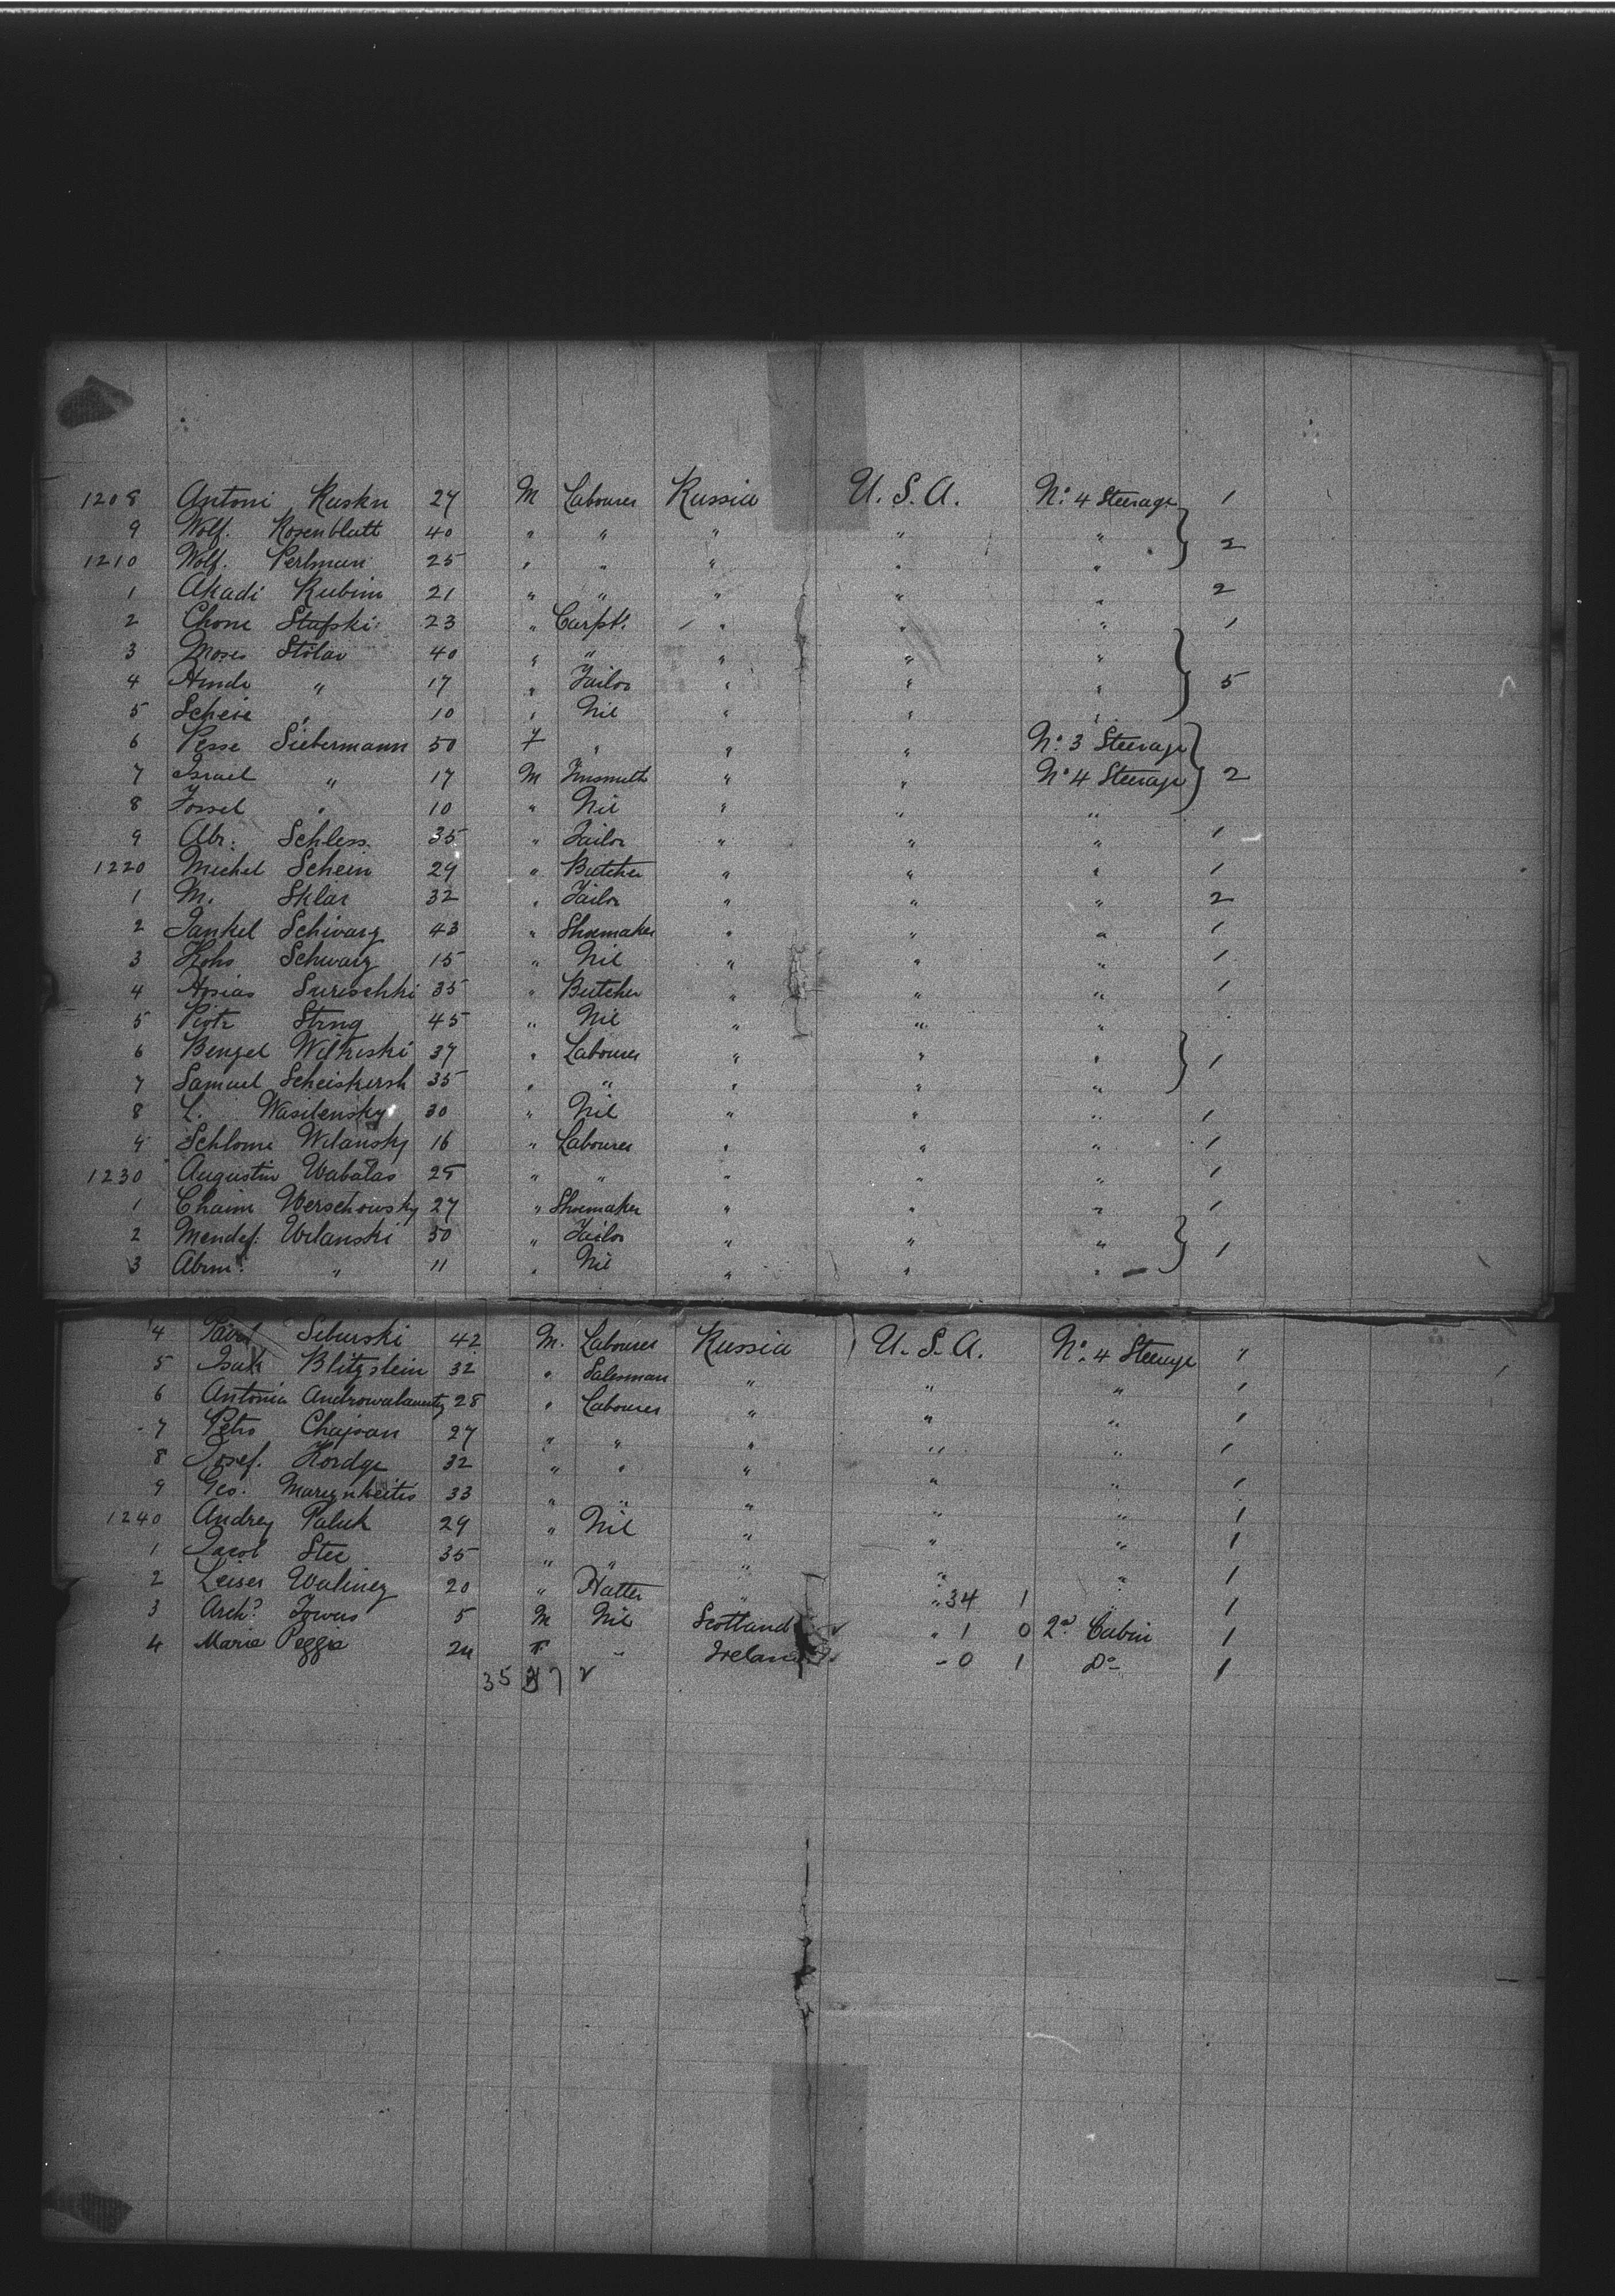 1208 Antoni Kaskn 27 M Labourer Russia U. S. A. No. 4 Steerage 1
9 Wolf. Rosenblatt 40 " " " " "
1210 Wolf. Perlman 25 " " " " " } 2
1 Akadi Rubini 21 " " " " " 2
2 Chone Stafski 23 " Carpt. " " " 1
3 Moses Stolar 40 " " " " "
4 Hinde " 17 " Tailor " " " } 5
5 Scheie " 10 " Nil " " "
6 Pesse Siebermann 50 F " " " No. 3 Steerage
7 Israel " 17 M Tinsmith " " No. 4 Steerage } 2
8 Jossel " 10 " Nil " " "
9 Abr: Schless 35 " Tailor " " " 1
1220 Michel Schein 29 " Butcher " " " 1
1 M. Sklar 32 " Tailor " " " 2
2 Jankel Schivarz 43 " Shoemaker " " " 1
3 Schwarz 15 " Nil " " " 1
4 Hosias 35 " Butcher " " " 1
5 Piotr Strng 45 " Nil " " "
6 Benzel Wilkiski 37 " Labourer " " " } 1
7 Samuel 35 " " " " "
8 L. Wasilensky 30 " Nil " " " 1
9 Schlome Wilansky 16 " Labourer " " " 1
1230 Augustin Wabalas 25 " " " " " 1
1 Chaim Werschowsky 27 " Shoemaker " " " 1
2 Mendel: Wilanski 50 " Tailor " " " } 1
3 Abrm: " 11 " Nil " " "
4 Siburski 42 M. Labourer Russia U. S. A. No. 4 Steerage 1
5 Isak Blitzstein 32 " Salesman " " " 1
6 Antonia 28 " Labourer " " " 1
7 Petro Chajvan 27 " " " " " 1
8 Josef. Kordge 32 " " " " " 1
9 Geo. 33 " " " " " 1
1240 Andrey Paluk 29 " Nil " " " 1
1 Jacob Stec 35 " " " " " 1
2 Leiser Walinez 20 " Hatter " " 34 1 " 1
3 Archd Towers 5 M Nil Scotland " 1 0 2d Cabin 1
4 Marie Peggie 24 F " Ireland " 0 1 Do 1
35